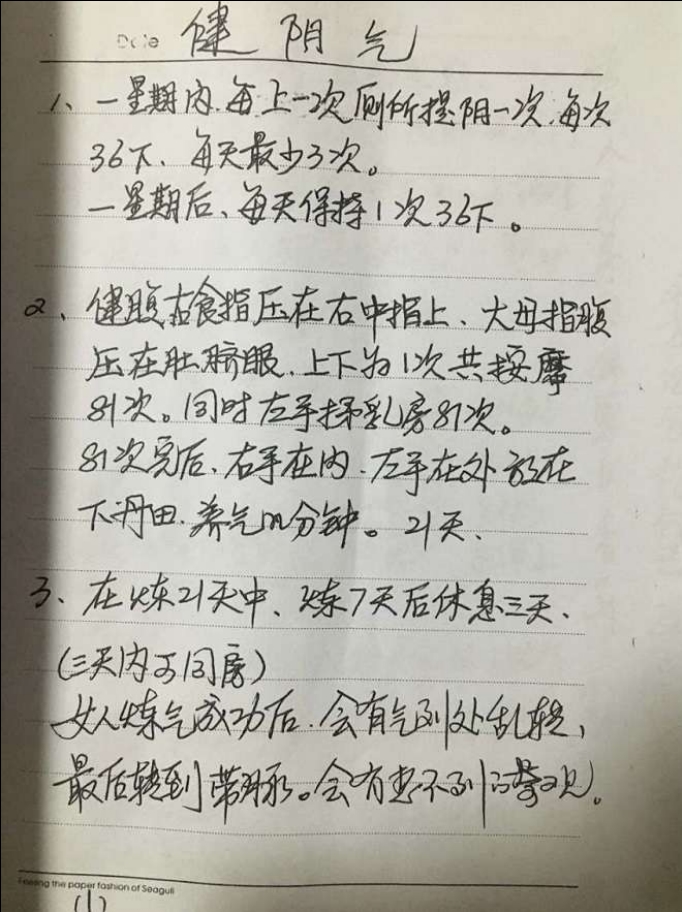 Date 健阴气
1、一星期内.每上一次厕所提阴一次.每次
36下、每天最少3次。
一星期后、每天保持1次36下。
2、健腹右食指压在右中指上、大母指腹
压在肚脐眼.上下为1次共按摩
81次。同时左手揉乳房81次。
81次完后.右手在内.左手在外放在
下丹田.养气几分钟。21天、
3、在炼21天中、炼7天后休息三天、
(三天内可同房)
女人炼气成功后.会有气到处乱转,
最后转到带脉。会有想不到的景观。
the paper fashion of Seagull
(1)